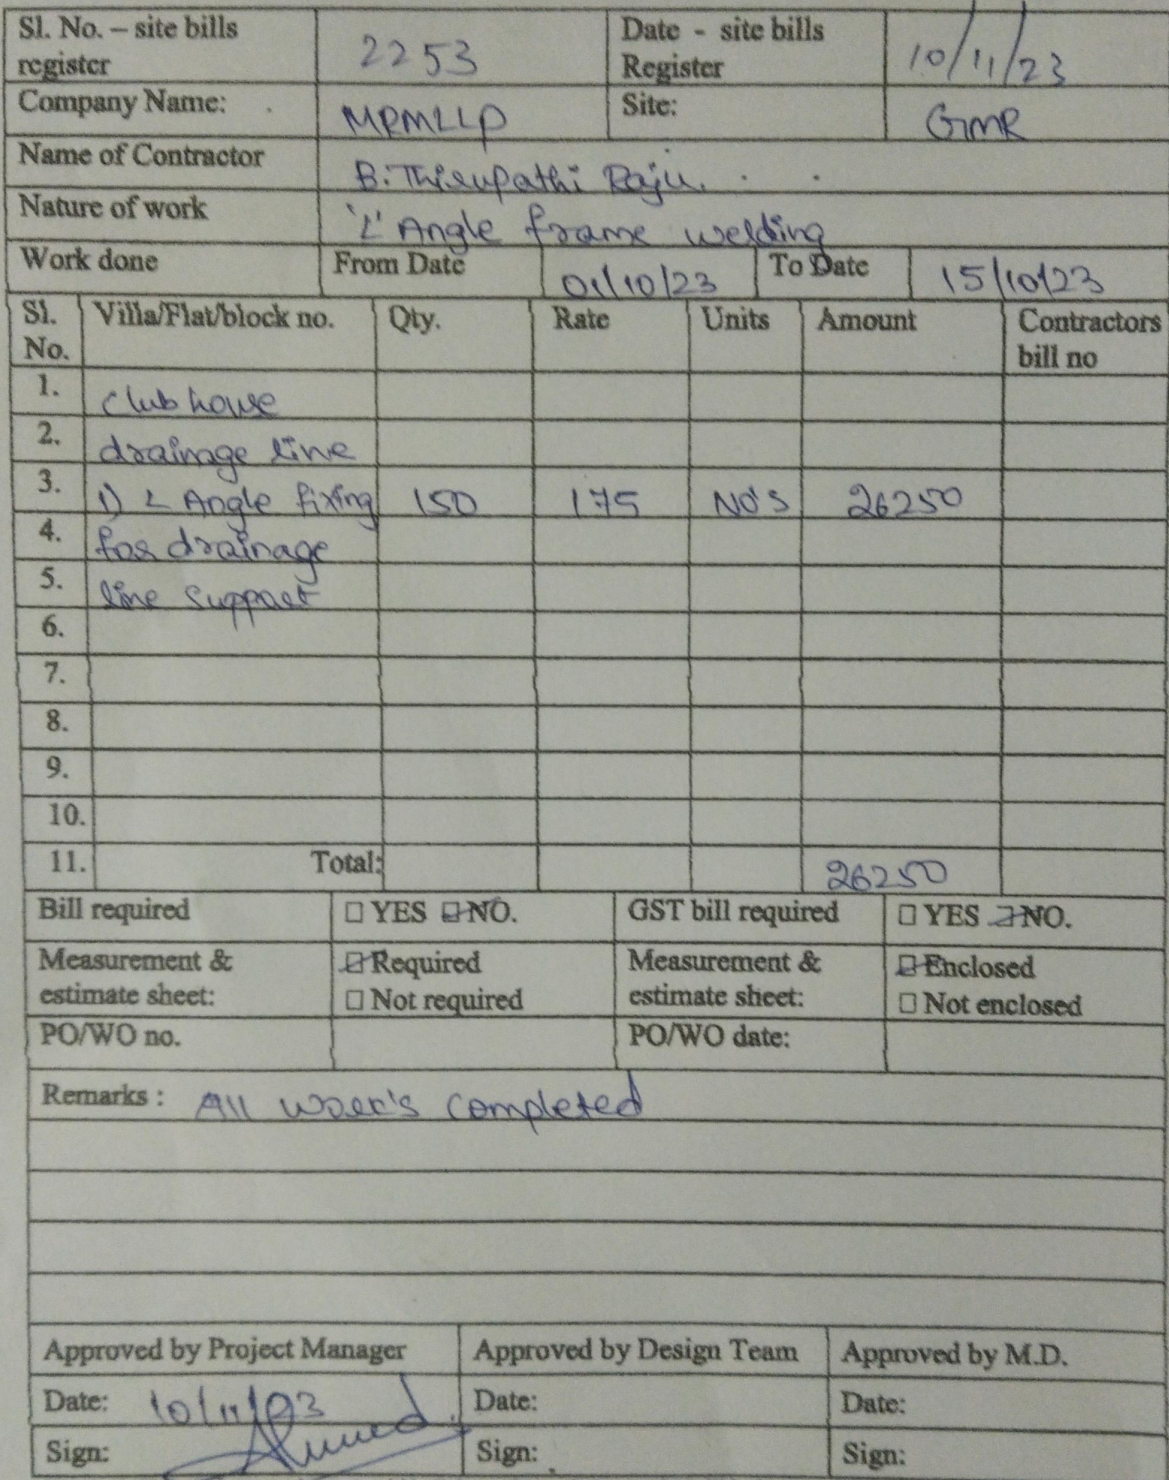 Sl. No. – site bills register 2253 Date - site bills Register 10/11/23
Company Name: MRMLLP Site: GMR
Name of Contractor B. Thirupathi Raju
Nature of work 'L' Angle frame welding
Work done From Date 01/10/23 To Date 15/10/23
Sl. No. Villa/Flat/block no. Qty. Rate Units Amount Contractors bill no
1. club house
2. drainage line
3. 1) L Angle fixing 150 175 NO'S 26250
4. for drainage
5. line support
6.
7.
8.
9.
10.
11. Total: 26250
Bill required ☐ YES ☑ NO. GST bill required ☐ YES ☑ NO.
Measurement & estimate sheet: ☑ Required ☐ Not required Measurement & estimate sheet: ☑ Enclosed ☐ Not enclosed
PO/WO no. PO/WO date:
Remarks : All work's completed
Approved by Project Manager Approved by Design Team Approved by M.D.
Date: 10/11/23 Date: Date:
Sign: Sign: Sign: